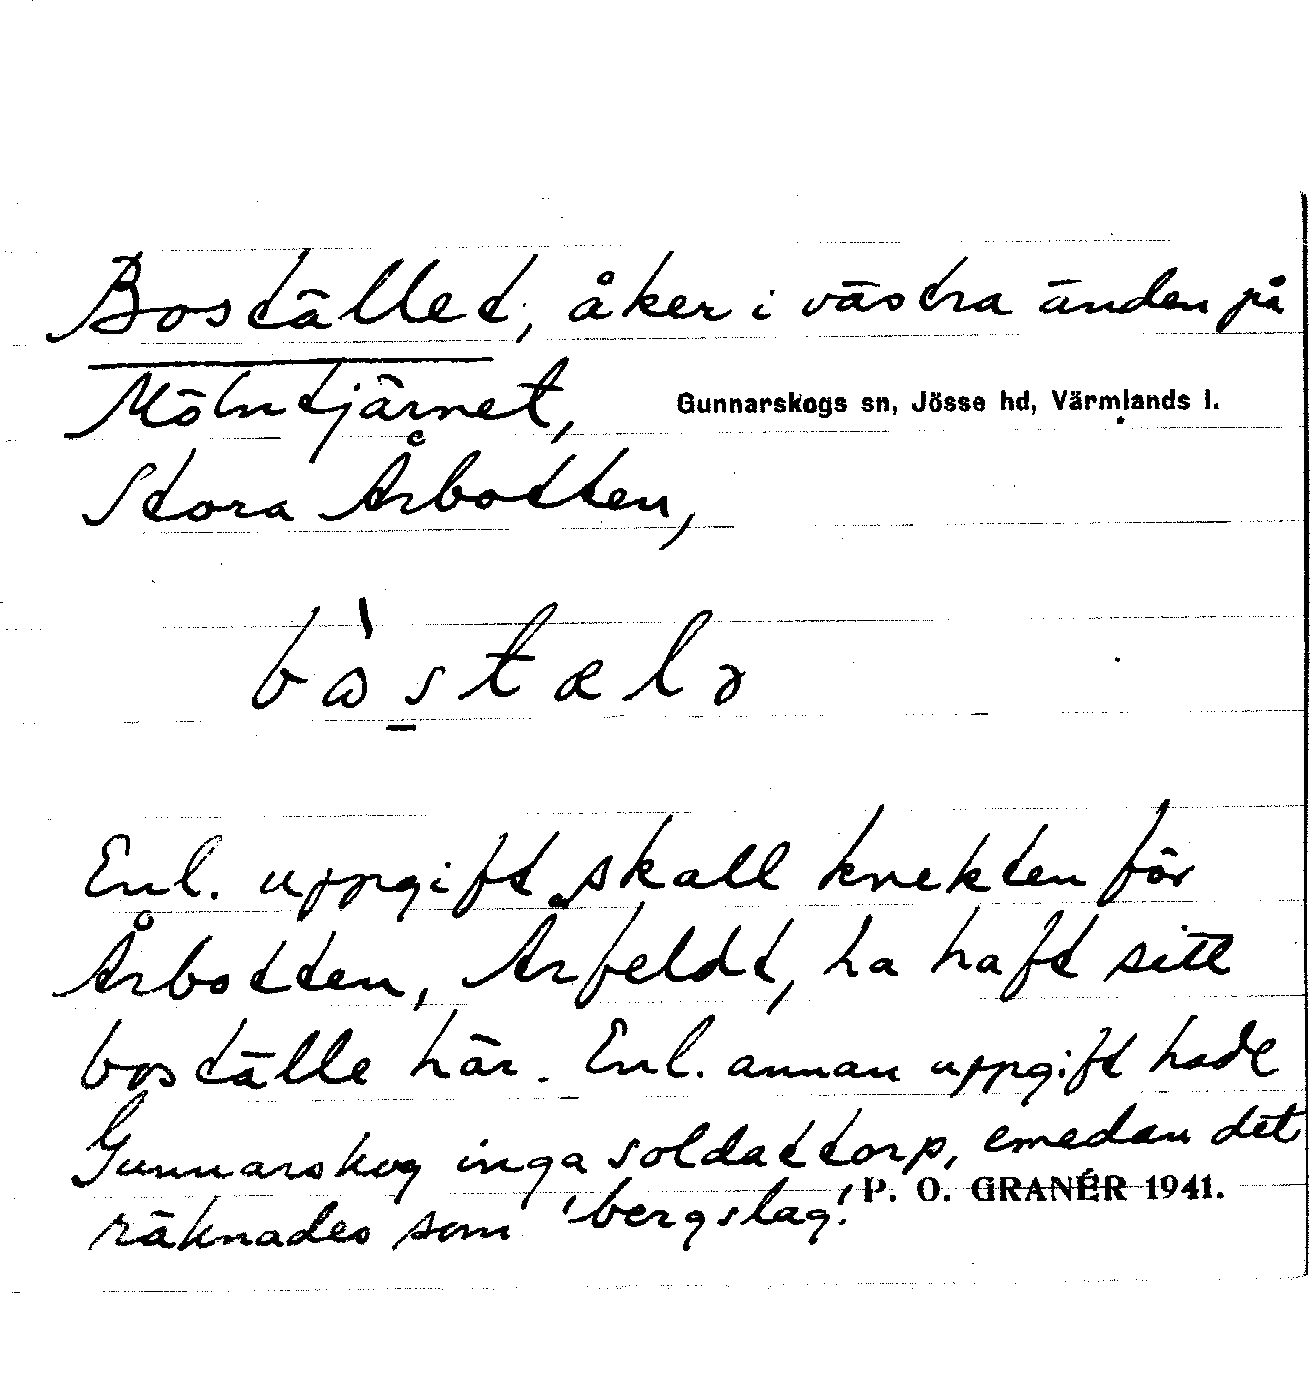 Bostället, åker i västra änden på
Mölntjärnet, Gunnarskogs sn, Jösse hd, Värmlands l.
Stora Årbotten,
bòstælə
Enl. uppgift skall knekten för
Årbotten, Arfeldt, ha haft sitt
boställe här. Enl. annan uppgift hade
Gunnarskog inga soldattorp, emedan det
räknades som 'bergslag'.
P. O. GRANÉR 1941.